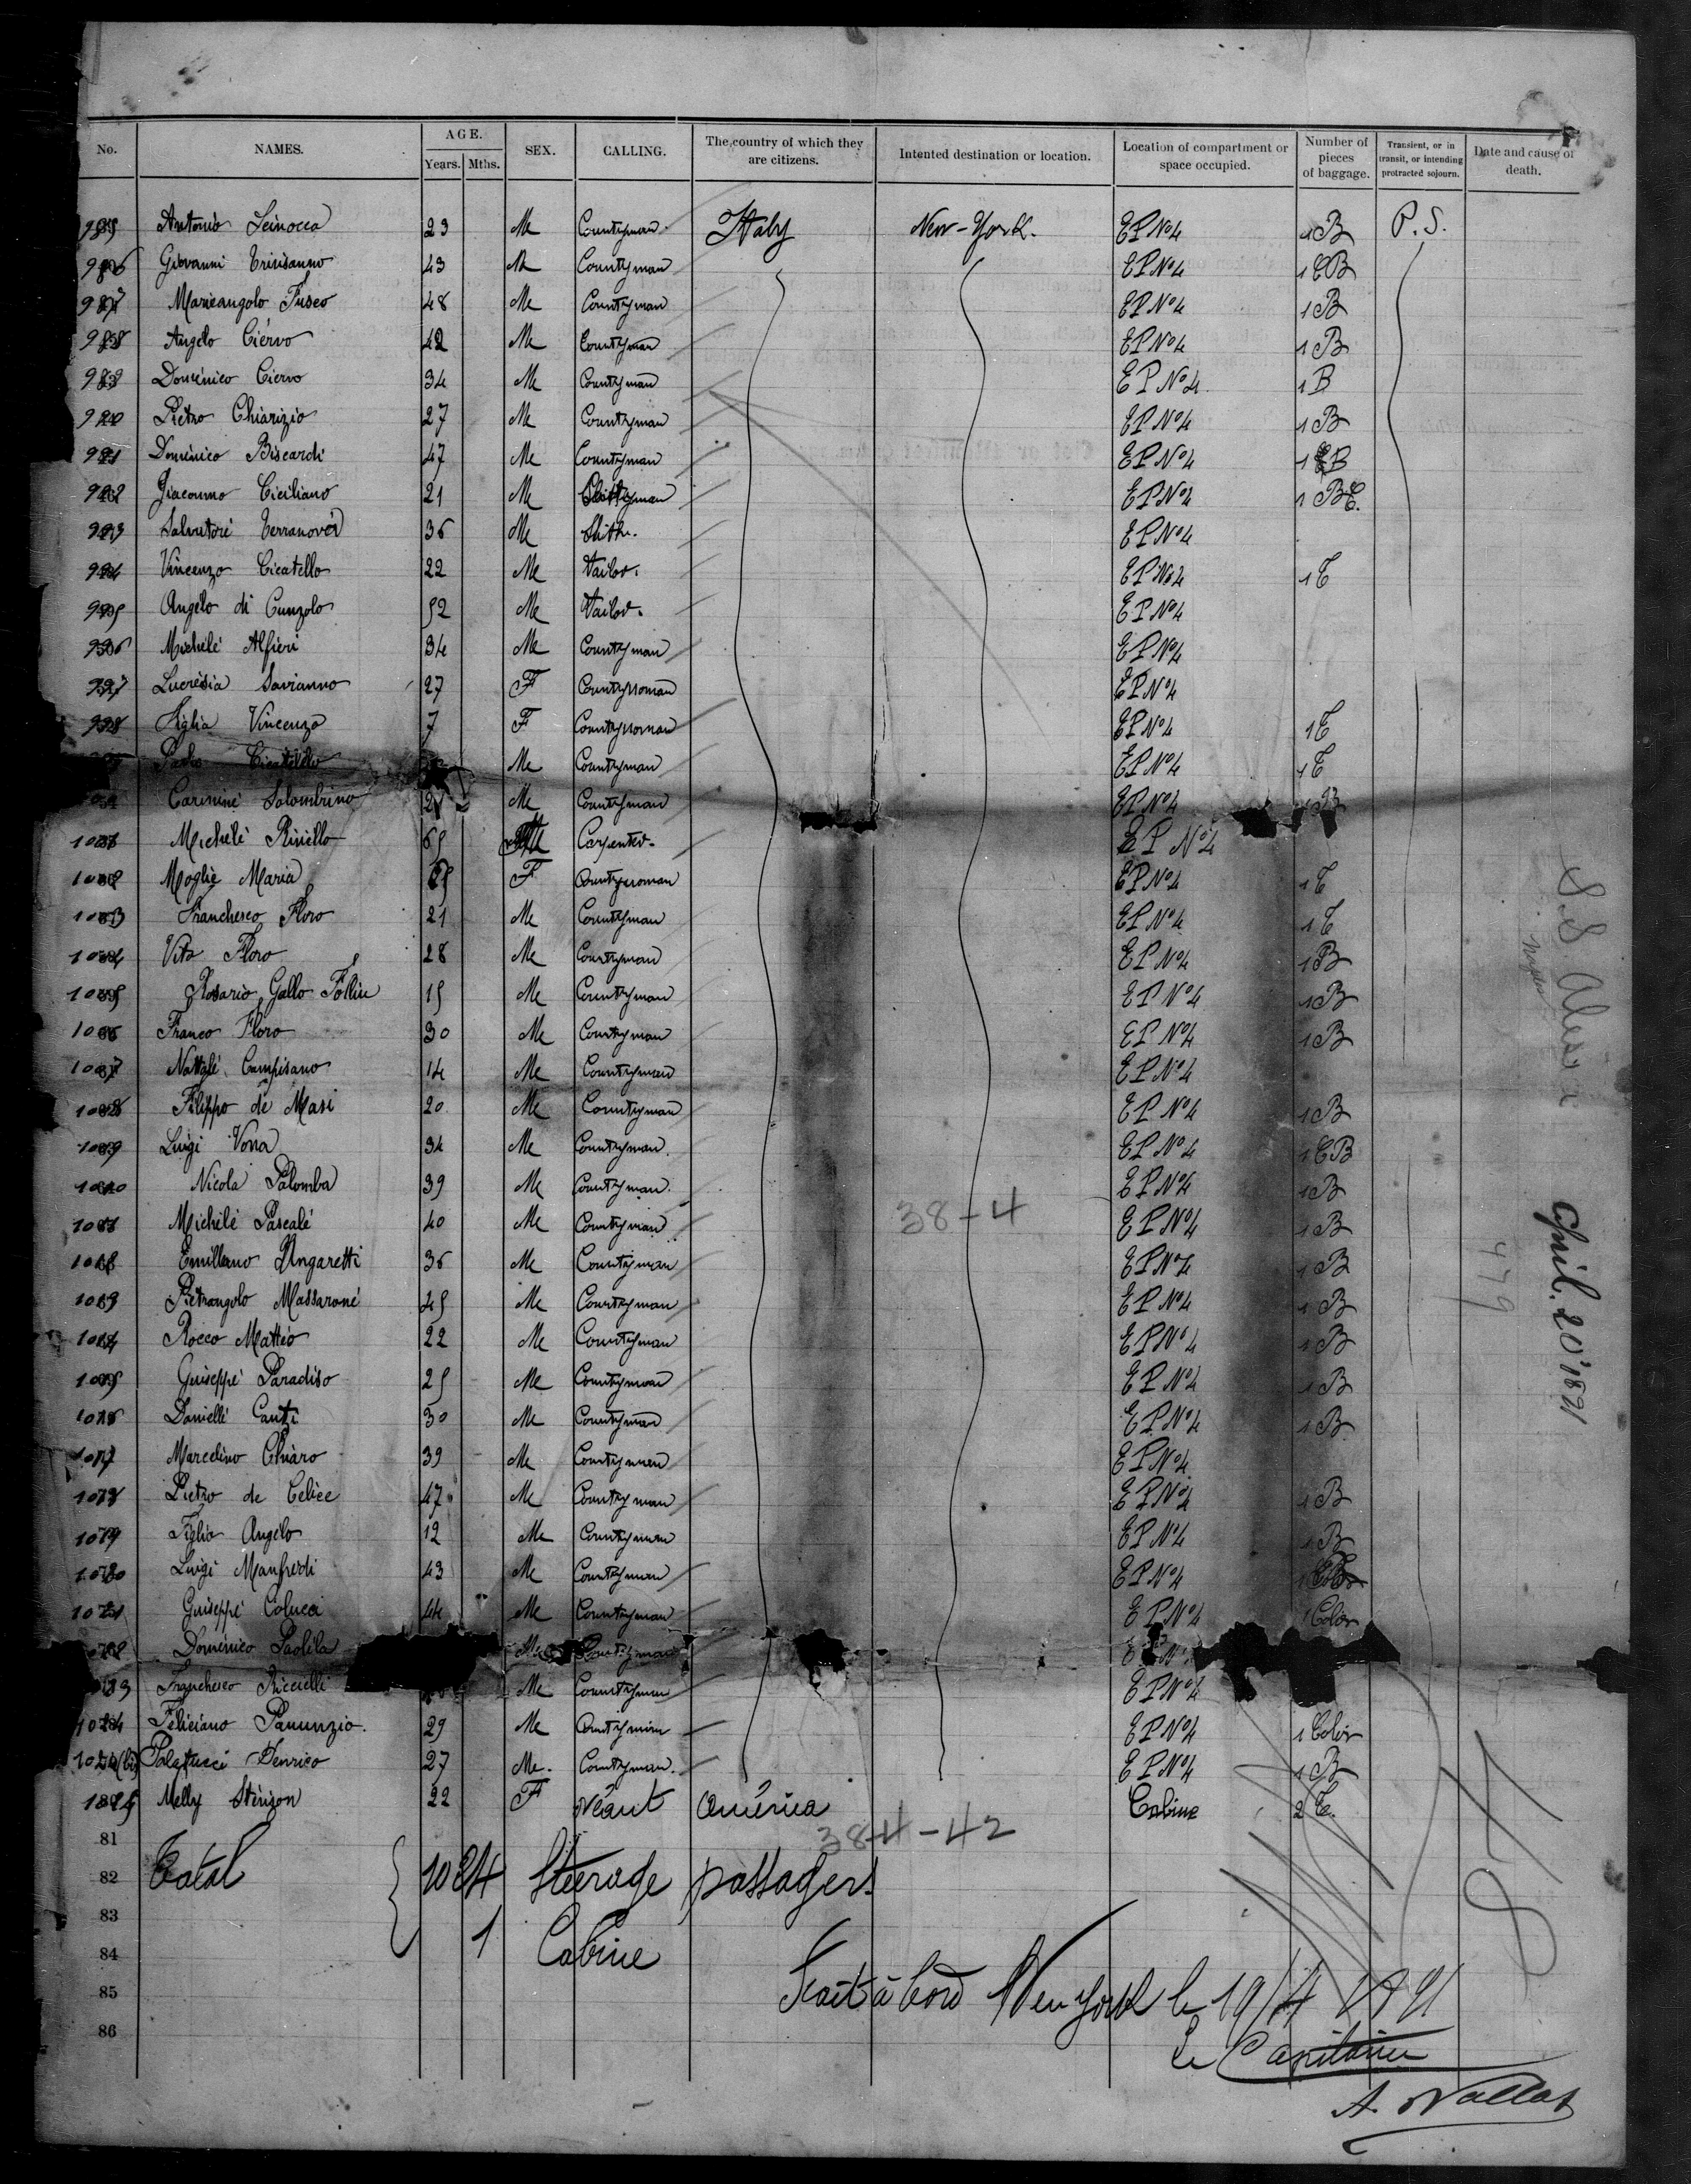 No. NAMES. AGE. Years. Mths. SEX. CALLING. The country of which they are citizens. Intented destination or location. Location of compartment or space occupied. Number of pieces of baggage. Transient, or in transit, or intending protracted sojourn. Date and cause of death.
985 Antonio Scinocca 23 Me Countryman Italy New-York. EP No 4 1 B P.S.
986 Giovanni Trivisanno 43 Me Countryman EP No 4 1 EB
987 Marieangolo Fusco 48 Me Countryman EP No 4 1 B
988 Angelo Ciervo 42 Me Countryman EP No 4 1 B
989 Doménico Ciervo 34 Me Countryman EP No 4 1 B
990 Piétro Chiarizio 27 Me Countryman EP No 4 1 B
991 Doménico Biscardi 47 Me Countryman EP No 4 1 B
992 Giacommo Ciciliano 21 Me Countryman EP No 4 1 B
993 Salvatoré Terranova 36 Me EP No 4
994 Vincenzo Cicatello 22 Me Tailor. EP No 4 1 T
995 Angélo di Cunzolo 52 Me Tailor. EP No 4
996 Michelé Alfiéri 34 Me Countryman EP No 4
997 Lucrésia Savianno 27 F Countrywoman EP No 4
998 Figlia Vincenza 7 F Countrywoman EP No 4 1 T
Cicatiello Me Countryman EP No 4 1 T
Carminé Solombrino Me Countryman EP No 4 1 B
1001 Michelé Riviello 65 Carpenter. EP No 4
1002 Moglié Maria F Countrywoman EP No 4 1 T
1003 Franchesco Floro 21 Me Countryman EP No 4 1 T
1004 Vito Floro 28 Me Countryman EP No 4 1 B
1005 Rosario Gallo 15 Me Countryman EP No 4 1 B
1006 Franco Floro 30 Me Countryman EP No 4 1 B
1007 Natalé Campisano 14 Me Countryman EP No 4
1008 Filippo dé Masi 20 Me Countryman EP No 4 1 B
1009 Luigi Vona 34 Me Countryman. EP No 4 1 B
1010 Nicola Palomba 39 Me Countryman. EP No 4 1 B
1011 Michélé Pascalé 40 Me Countryman EP No 4 1 B
38-4
Emiliano Ungaretti 36 Me Countryman EP No 4 1 B
Piétrangolo Massaroné 45 Me Countryman EP No 4 1 B
1014 Rocco Mattéo 22 Me Countryman EP No 4 1 B
1015 Guiseppé Paradiso 25 Me Countryman EP No 4 1 B
1016 Daniellé Canti 30 Me Countryman EP No 4 1 B
1017 Marcelino Chiaro 39 Me Countryman EP No 4
Piétro de Célice 47 Me Countryman EP No 4 1 B
Figlio Angélo 12 Me Countryman EP No 4 1 B
Luigi Manfrédi 43 Me Countryman EP No 4
Guiseppé Colucci 44 Me Countryman EP No 4 1 Color
Doménico Paolila Me Countryman
Franchesco Riccielli Me Countryman EP No 4
1024 Féliciano Panunzio. 29 Me Countryman EP No 4 1 Color
1024 (bis) Palatucci Henrico 27 Me. Countryman. EP No 4 1 B
1025 Melly Stérizon 22 F Néant América Cabine 2 T.
38-4-42
81
82 Total 1024 Steerage passagers
83
84 1 Cabine
85 Fait à bord New York le 19/4 1891
86 Le Capitaine
A.
S.S Alesia
Naples
April. 20' 1891
479